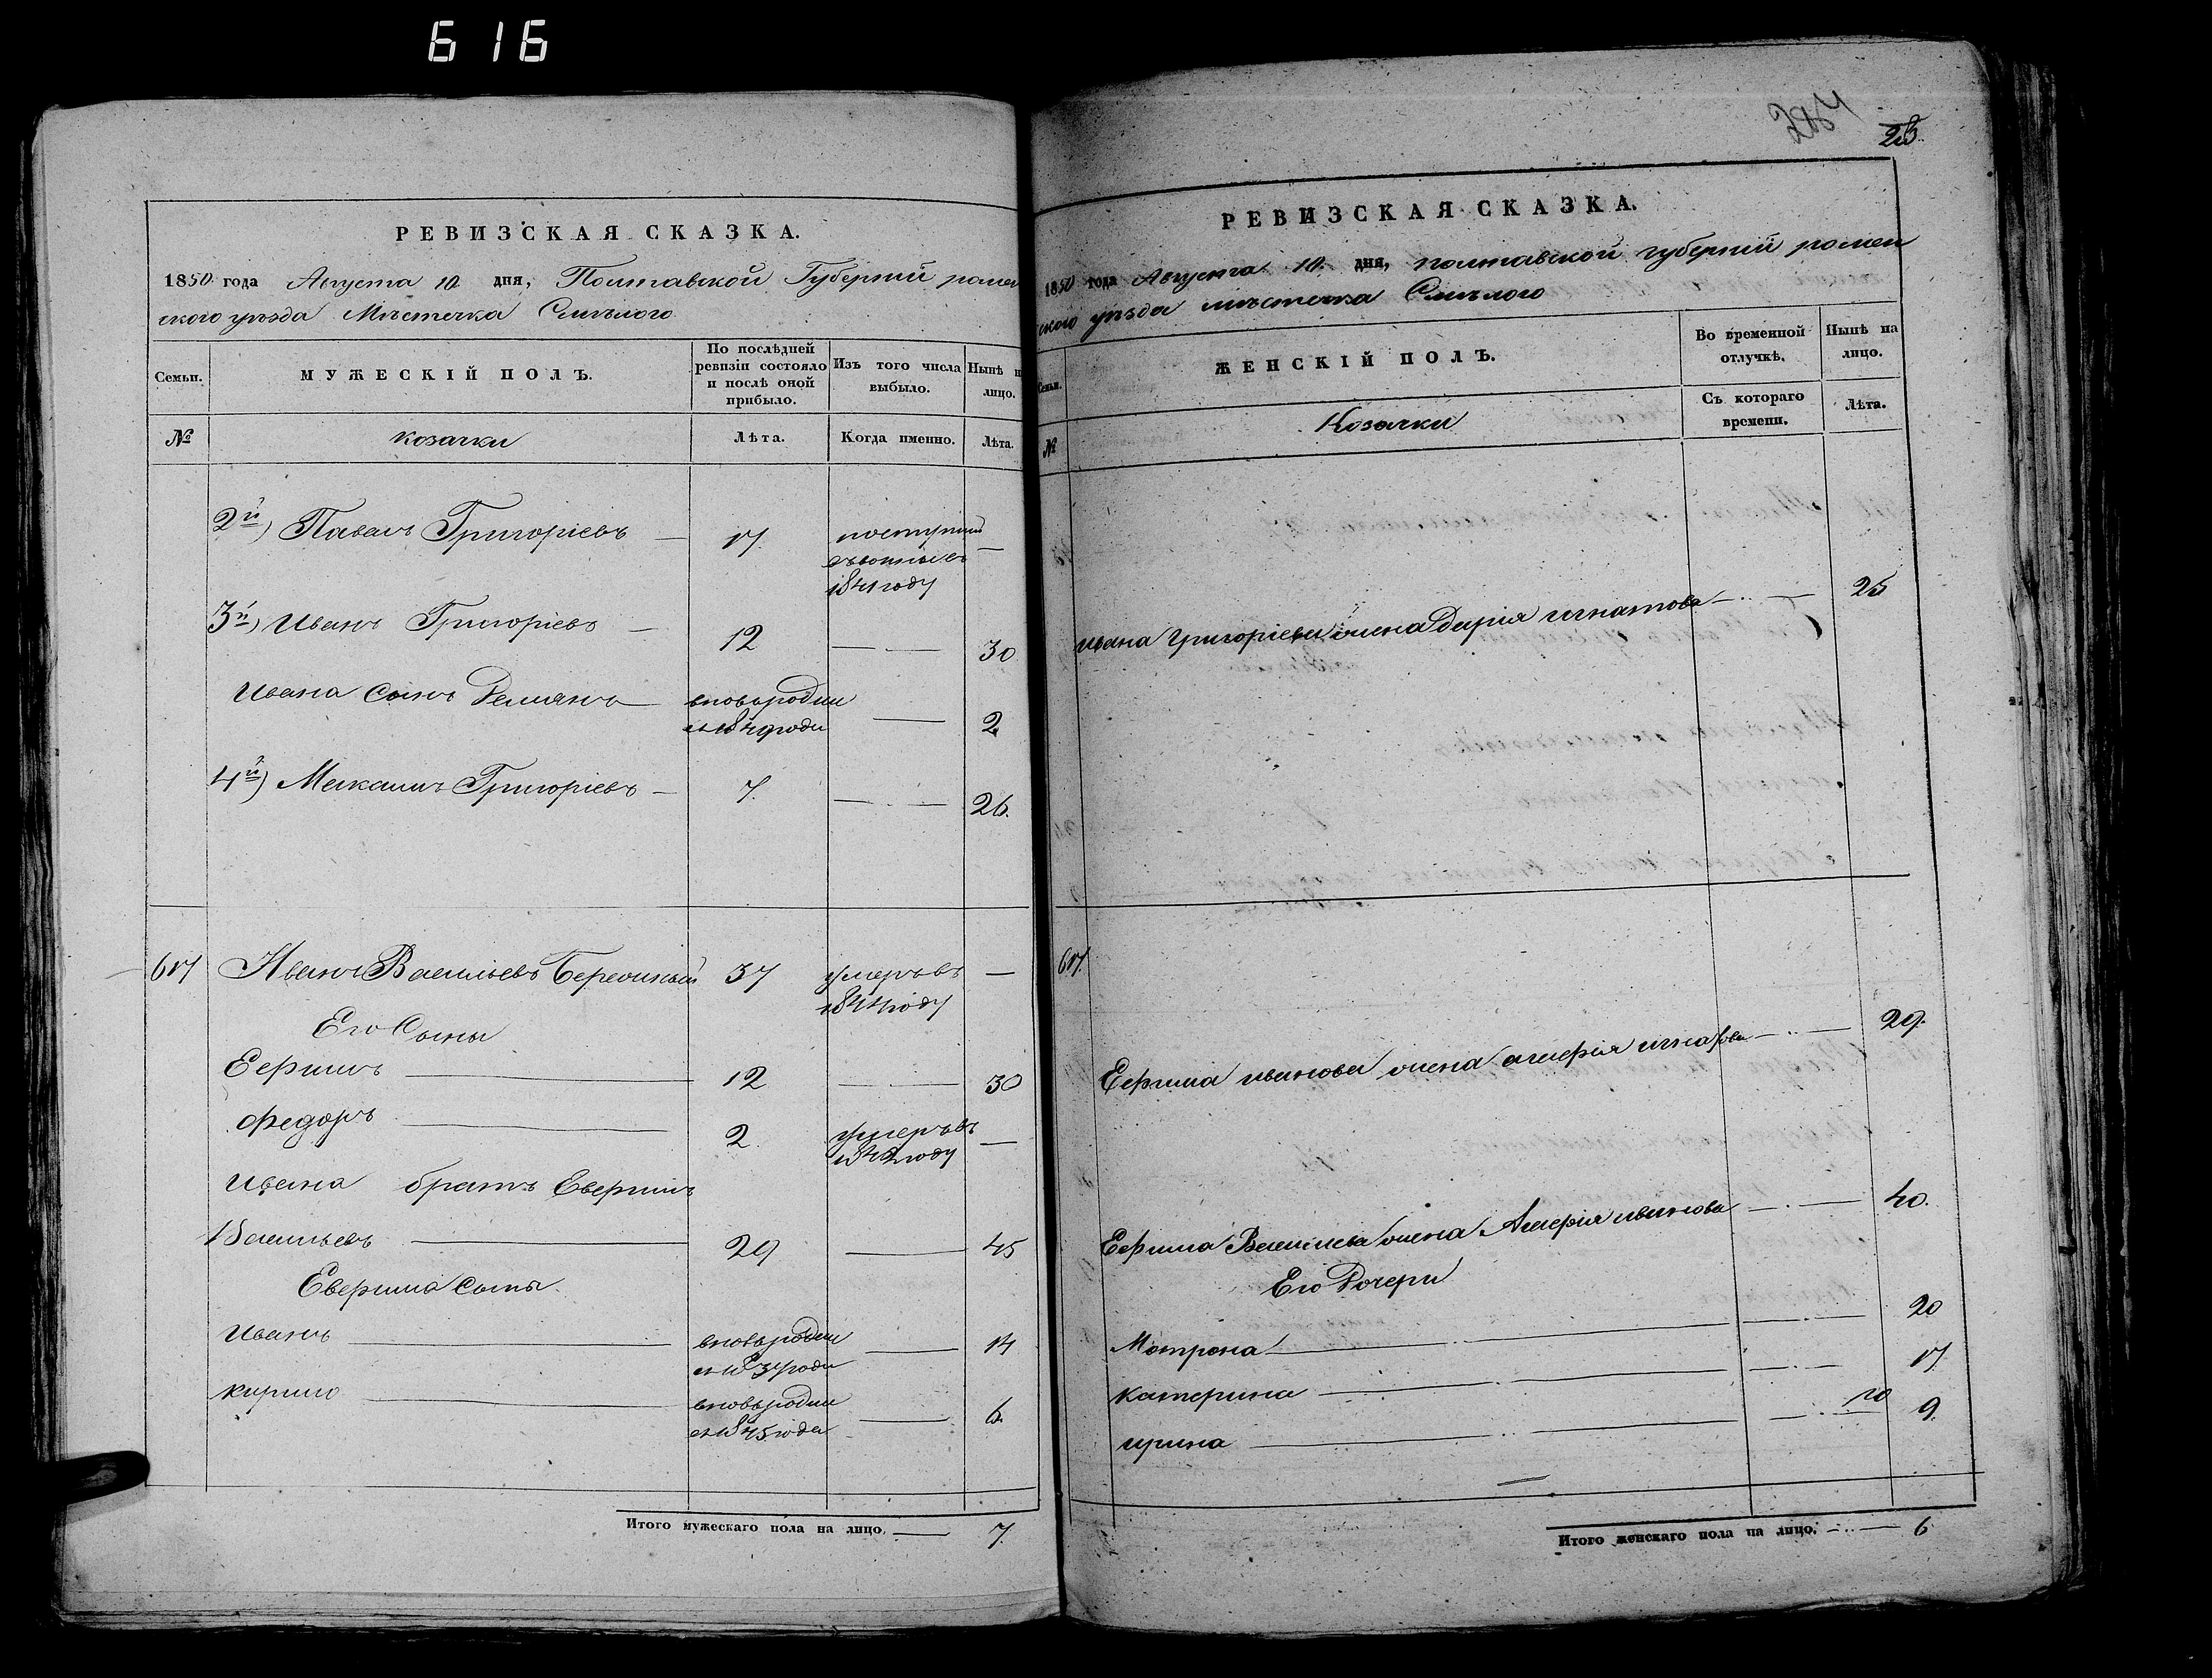 616
РЕВИЗСКАЯ СКАЗКА.
1850 года Августа 10 дня, Полтавской Губернии ромен
ского уезда Мѣстечка Смѣлого
Семьи.
МУЖЕСКІЙ ПОЛЪ.
По послѣдней ревизіи состояло и послѣ оной прибыло.
Изъ того числа выбыло.
Нынѣ н лицо.
№
козачки
Лѣта.
Когда именно.
Лѣта.
2й) Павелъ Григоріевъ — 17. поступил —
1841 году
3й) Иванъ Григоріевъ — 12 — 30
Ивана Сынъ Демянъ — вновьродил 2
ся 1849 года
4й) Максимъ Григоріевъ — 7. — 26.
617 Иванъ Васильевъ 37 умеръ въ —
1844 году
Его Сыны
Ефримъ — 12 — 30
Федоръ — 2 умеръ въ —
1842 году
Ивана братъ Ефримъ
Васильевъ — 29 — 45
Ефрима Сыны
Иванъ — вновьродил — 14
ся 1837 года
кирило — вновьродил — 6.
ся 1845 года
Итого мужескаго пола на лицо. — 7.
284
23
РЕВИЗСКАЯ СКАЗКА.
1850 года Августа 10. дня, полтавской губерній ромен
ского уѣзда мѣстечка Смѣлого
Семьи.
ЖЕНСКІЙ ПОЛЪ.
Во временной отлучкѣ.
Нынѣ на лицо.
Съ котораго времени.
Лѣта.
№
Козачки
Ивана Григоріева жена Дарія игнатова — 25
617.
Ефрима иванова жена — 29.
Ефрима Василиева жена иванова — 40.
Его Дочери
Мотрона — 20
катерина — 17.
ирина — 9.
Итого женскаго пола на лицо. — 6